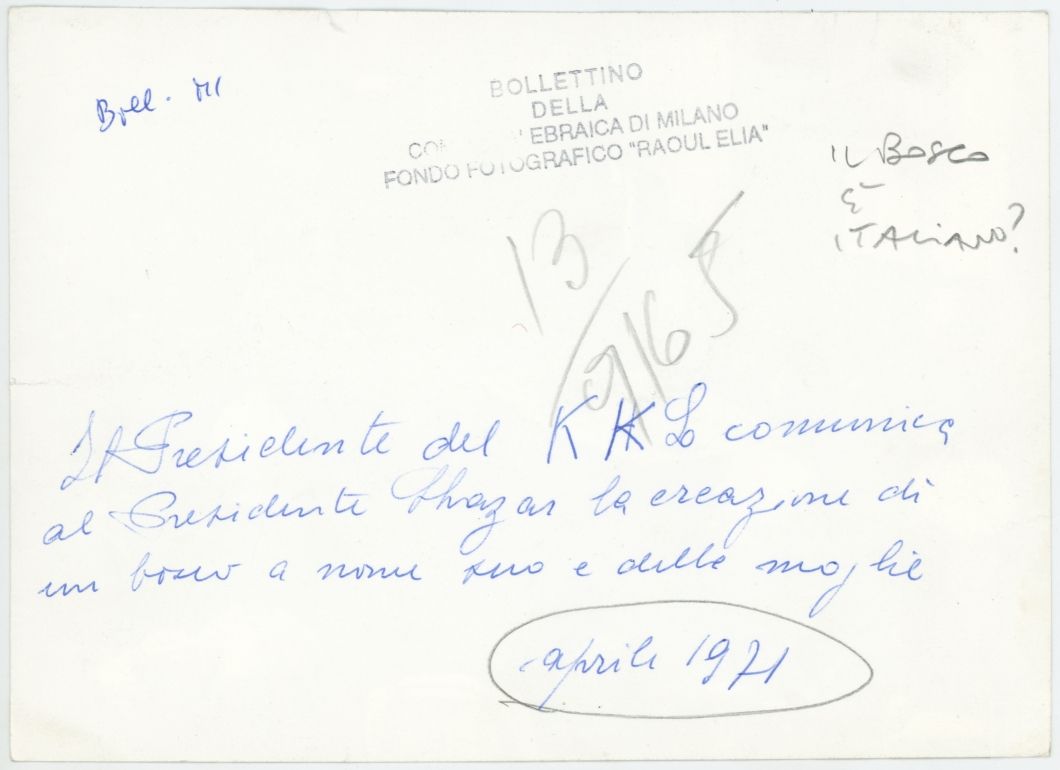 Boll. III
BOLLETTINO
DELLA
COM EBRAICA DI MILANO
FONDO FOTOGRAFICO "RAOUL ELIA"
IL BOSCO
È
ITALIANO?
13/9165
Il Presidente del KKL comunica
al Presidente Shazar la creazione di
un bosco a nome suo e della moglie
aprile 1971